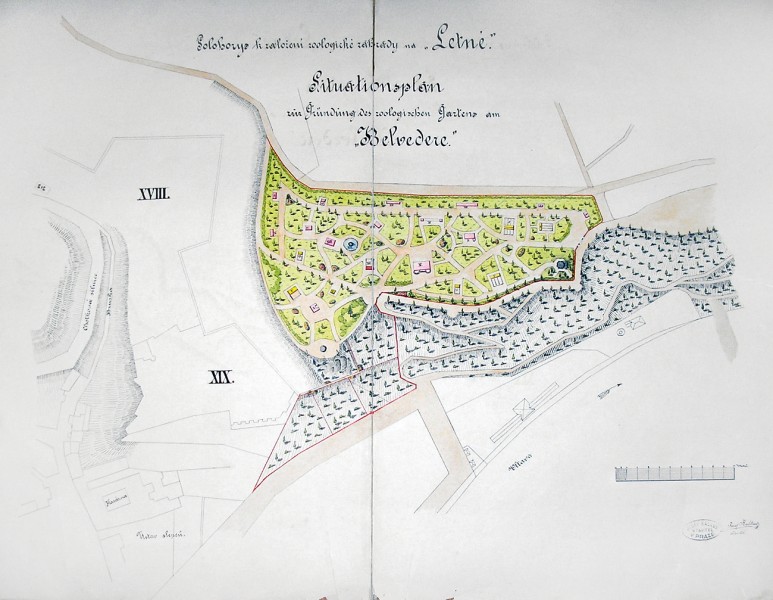 Polohopis k založení zoologické zahrady na „Letné."
Situationsplan
zur Gründung des zoologischen Gartens am
„Belvedere."
XVIII.
XIX.
Bruska
Vltava